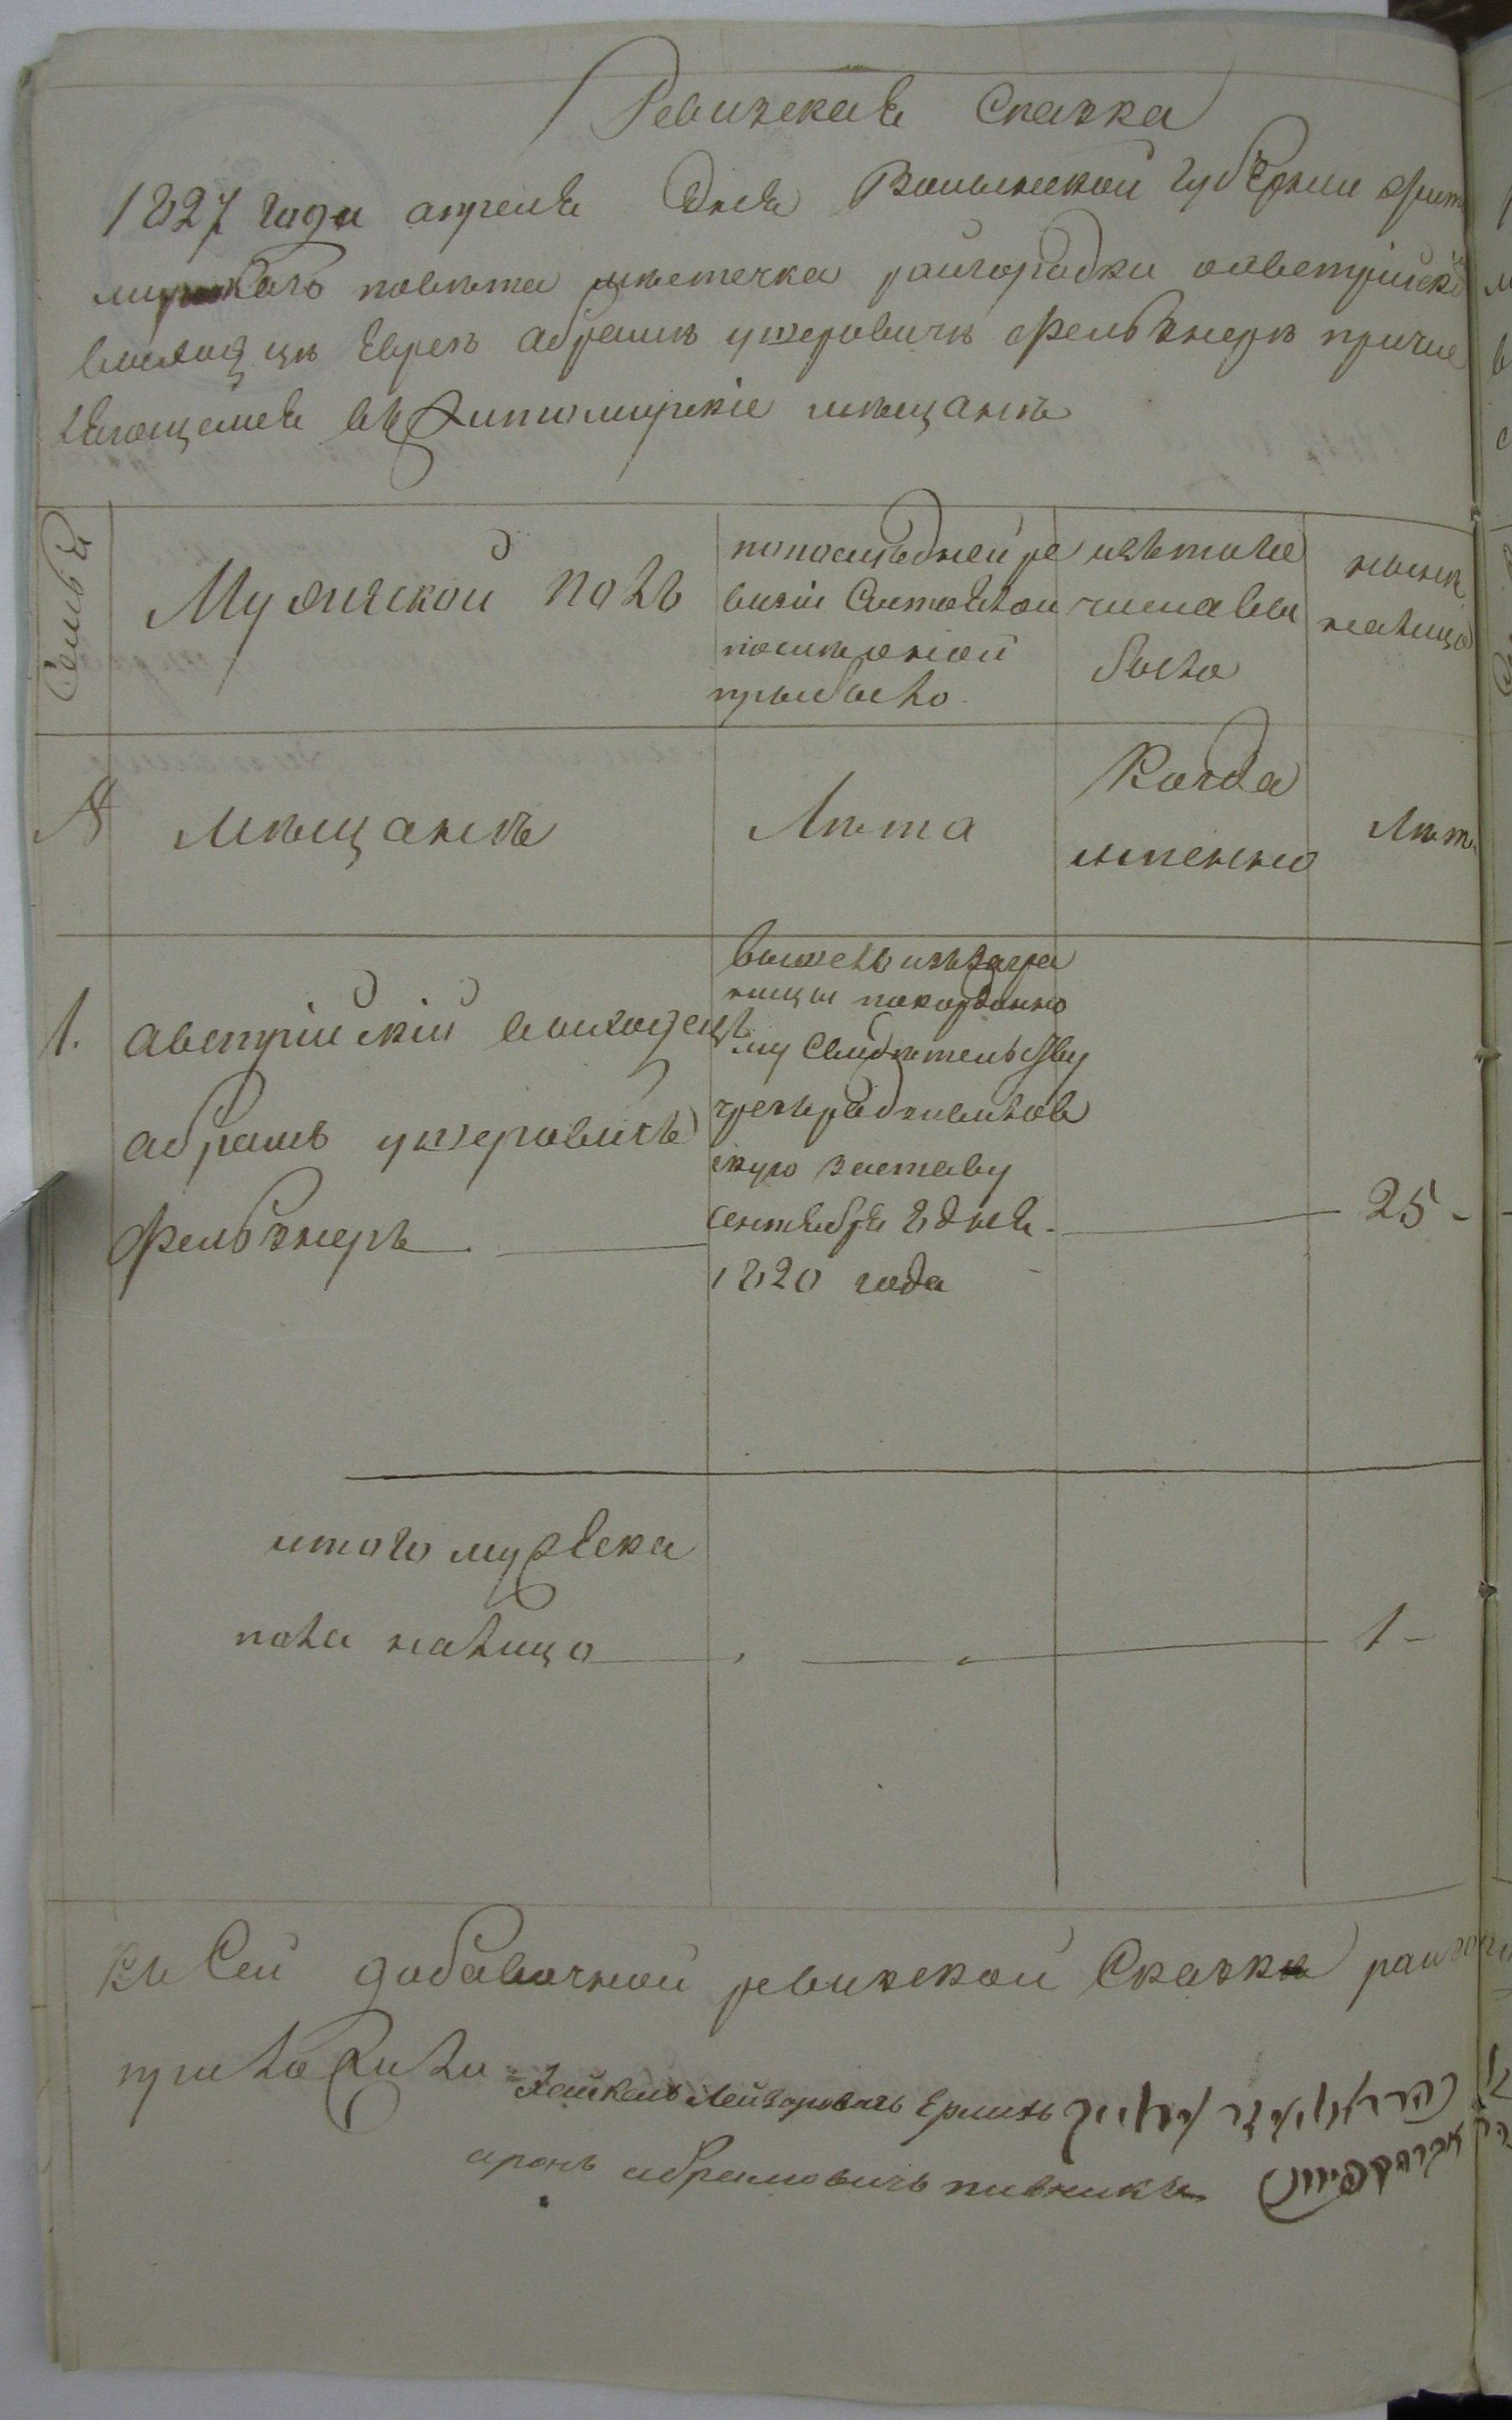 Ревизская Сказка
1827 года апреля дня Волынской губернии жит
мирскаго повѣта мѣстечка райгородки оавстрійск
выходцѣ Евреѣ абрамѣ ушеровичѣ фельзнерѣ причис
ляющемся въ житомирскіе мѣщанѣ
Семья
Мужнской полъ
попослѣдней ре
визіи Состояло и
послѣ оной
прыбыло
изътого
числа вы
было
нынѣ
налицо
№
мѣщанѣ
Лѣта
Когда
имѣнно
Лѣт
1.
австрійскій выходецъ
абрамъ ушеровичъ
фельзнеръ
вышелъ изъ загра
ницы покарданно
му Свидѣтельству
чрезъ радзивилов
скую заставу
сентября 2 дня
1820 года
25
итого мужеска
пола налицо
1
къ Сей добавочной ревизской Сказкѣ райго
приложили
Хайкель Лейзоровичь
аронъ абрамовичь пивникъ